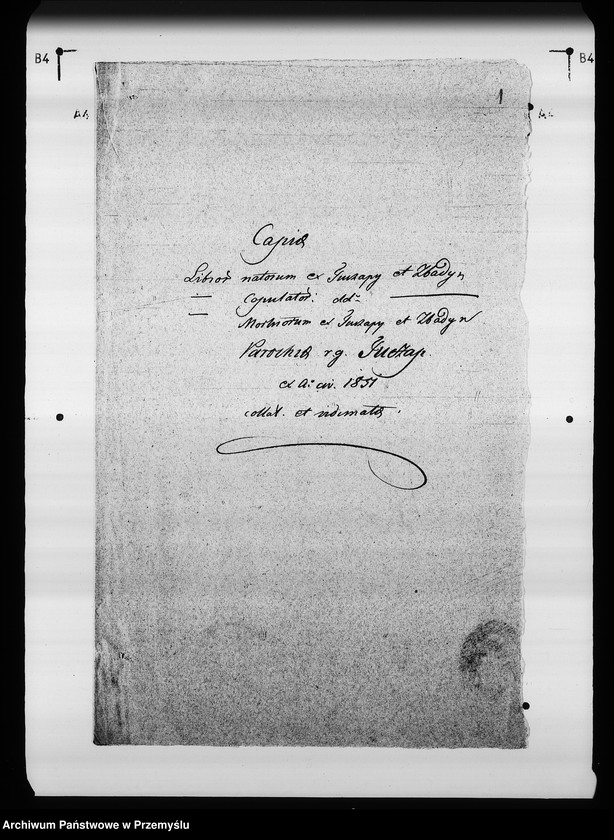 B4
B4
1
Copia
Libror natorum ex Juszapy et Zbadyn
— Copulator: dd:
— Mortuorum ex Juszapy et Zbadyn
Parochia r.g.
ex A: ai. 1851
collat. et vidimata.
Archiwum Państwowe w Przemyślu